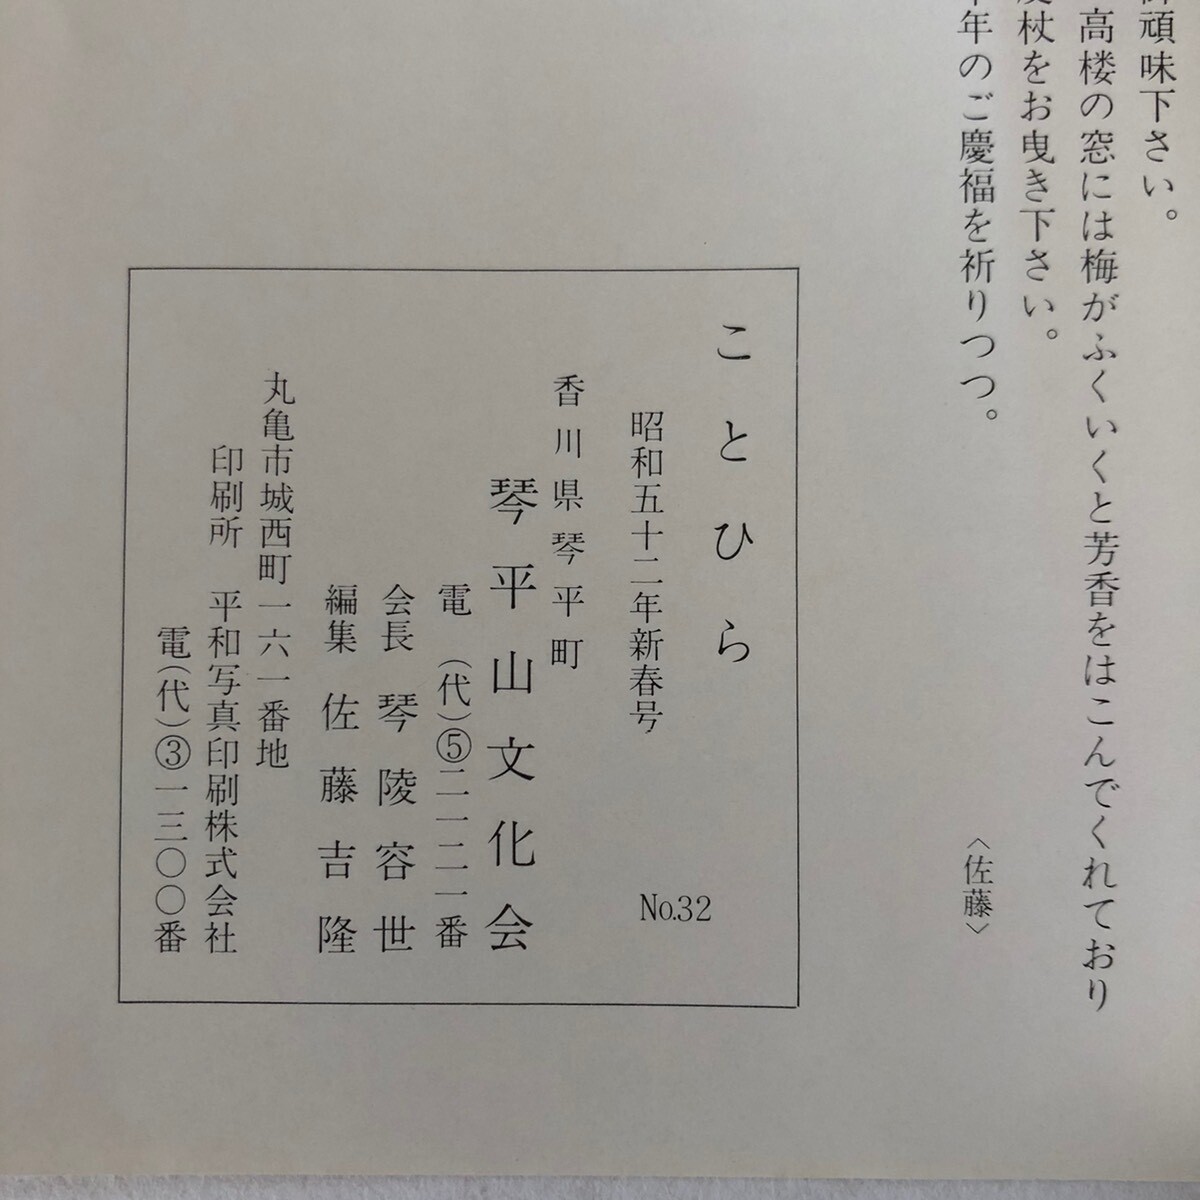 頑味下さい。
高楼の窓には梅がふくいくと芳香をはこんでくれており
杖をお曳き下さい。
年のご慶福を祈りつつ。
〈佐藤〉
ことひら
昭和五十二年新春号 No.32
香川県琴平町
琴平山文化会
電 (代)⑤二一二一番
会長 琴陵容世
編集 佐藤吉隆
丸亀市城西町一六一番地
印刷所 平和写真印刷株式会社
電(代)③一三〇〇番